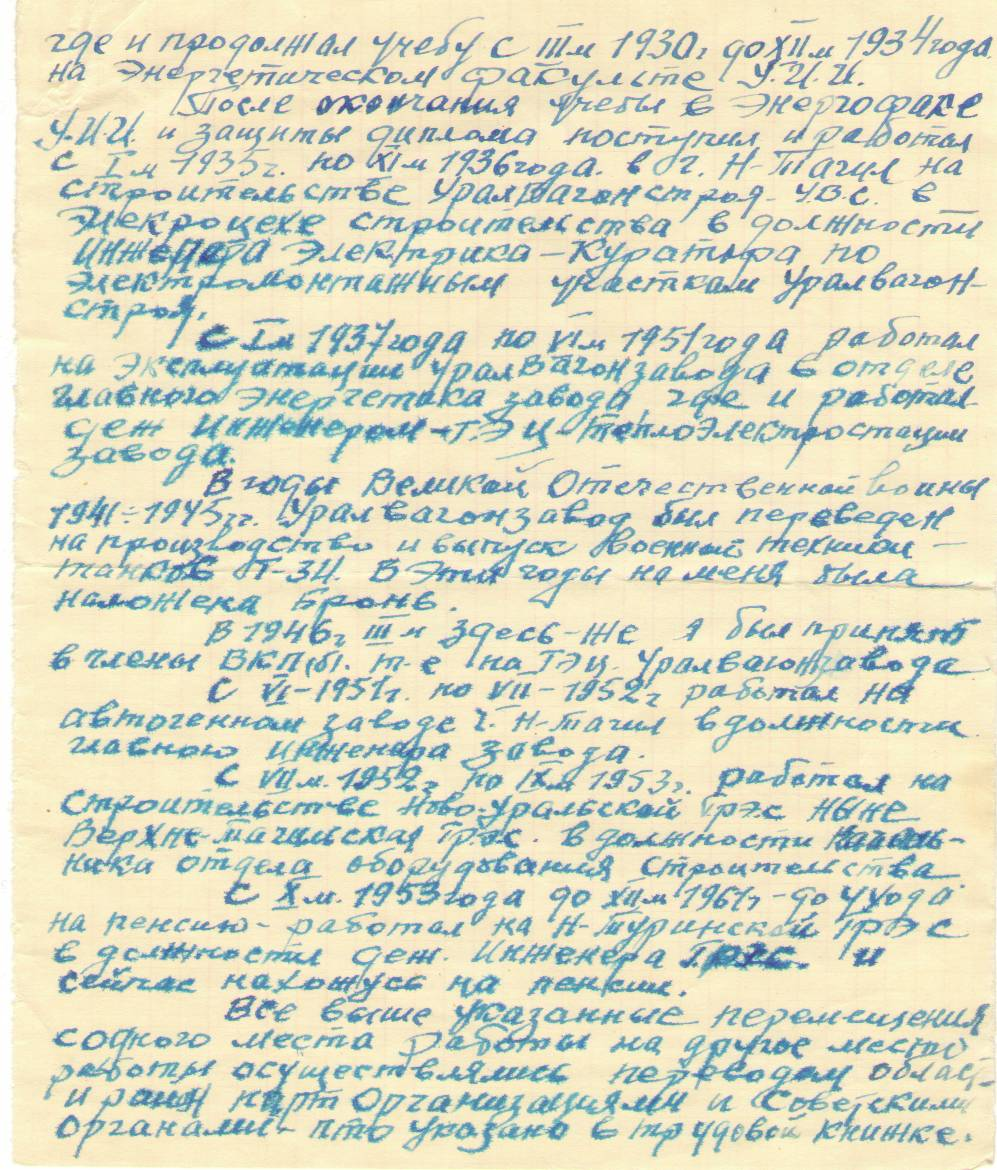 где и продолжал учебу с IIIм 1930г до XIIм 1934 года.
на Энергетическом факульте У.И.И.
После окончания учебы в Энергофаке
У.И.И. и защиты диплома поступил и работал
с Iм 1935г. по XIм 1936 года. в г. Н-Тагил на
строительстве Уралвагонстроя - У.В.С. в
Элекроцехе строительства в должности
Инженера Электрика - Куратора по
электромонтажным участкам Уралвагон-
строя.
С Iм 1937 года по VIм 1951 года работал
на эксплуатации УралВагонзавода в отделе
главного Энергетика завода, где и работал
деж Инженером - Т.Э.Ц - теплоэлектростации
завода.
В годы Великой Отечественной войны
1941÷1945гг. Уралвагонзавод был переведен
на производство и выпуск военной техники -
танков Т-34. В эти годы на меня была
наложена Бронь.
В 1946г IIIм здесь-же я был принят
в члены ВКП(б). т-е на ТЭЦ. Уралвагонзавода
С VI-1951г. по VII-1952г работал на
автогенном заводе г. Н-Тагил в должности
главного инженера завода.
С VIIм. 1952г по IXм 1953г. работал на
строительстве Ново-Уральской Грэс ныне
Верхне-Тагильская Грэс. в должности Началь-
ника отдела оборудования строительства
С Xм. 1953 года до XIIм 1961г - до ухода
на пенсию - работал на Н-Туринской ГРЭС
в должности деж. Инженера ГРЭС. и
сейчас нахожусь на пенсии.
Все выше указанные перемещения
с одного места работы на другое место
работы осуществлялись переводом област-
и район парт Организациями и Советскими
органами - что указано в трудовой книжке.